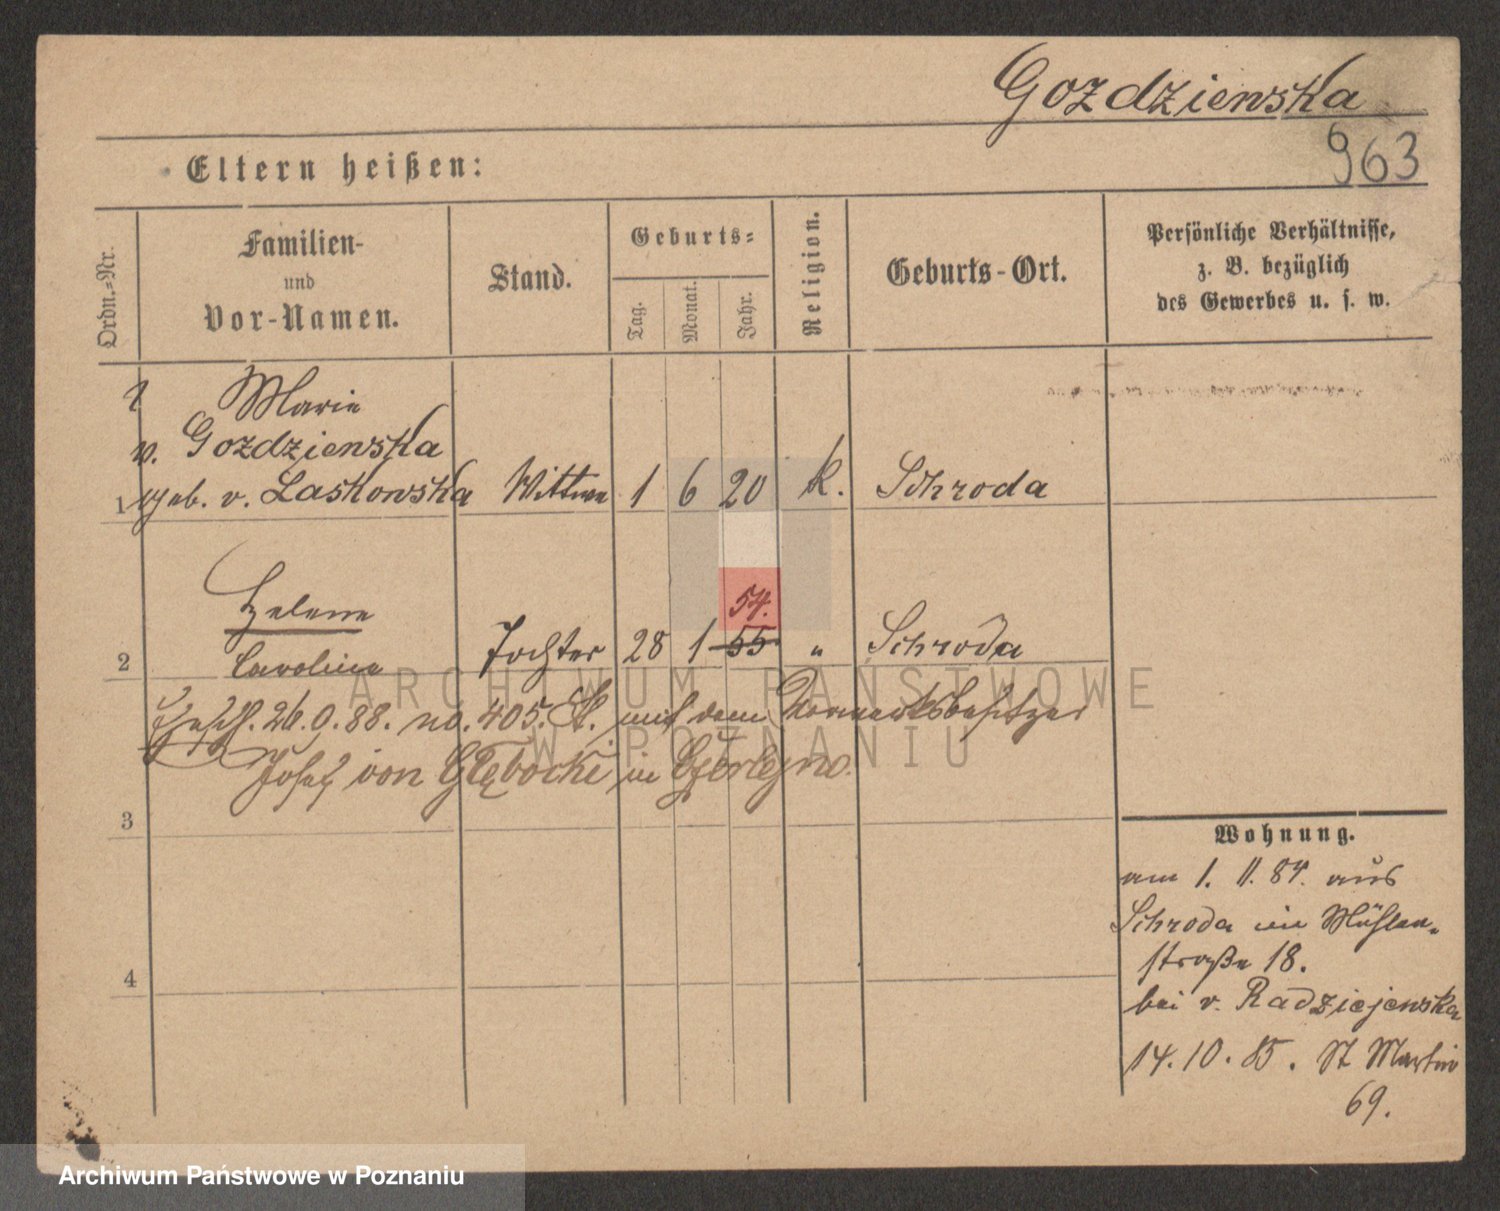 Gozdziewska
963
Eltern heißen:
Ordn.-Nr.
Familien-
und
Vor-Namen.
Stand.
Geburts-
Tag.
Monat.
Jahr.
Religion.
Geburts-Ort.
Persönliche Verhältnisse,
z. B. bezüglich
des Gewerbes u. s. w.
Marie
v. Gozdziewska
1 geb. v. Laskowska Wittwe 1 6 20 k. Schroda
Helene 54.
2 Carolina Tochter 28 1 55 " Schroda
26.9.88. no. 405. St. mit dem Vorwerksbesitzer
Josef von Głębocki in Czerlejno.
3
4
Wohnung.
am 1. 11. 84. aus
Schroda in Mühlen-
straße 18.
bei v. Radziejewska
14. 10. 85. St Martin
69.
ARCHIWUM PAŃSTWOWE
W POZNANIU
Archiwum Państwowe w Poznaniu